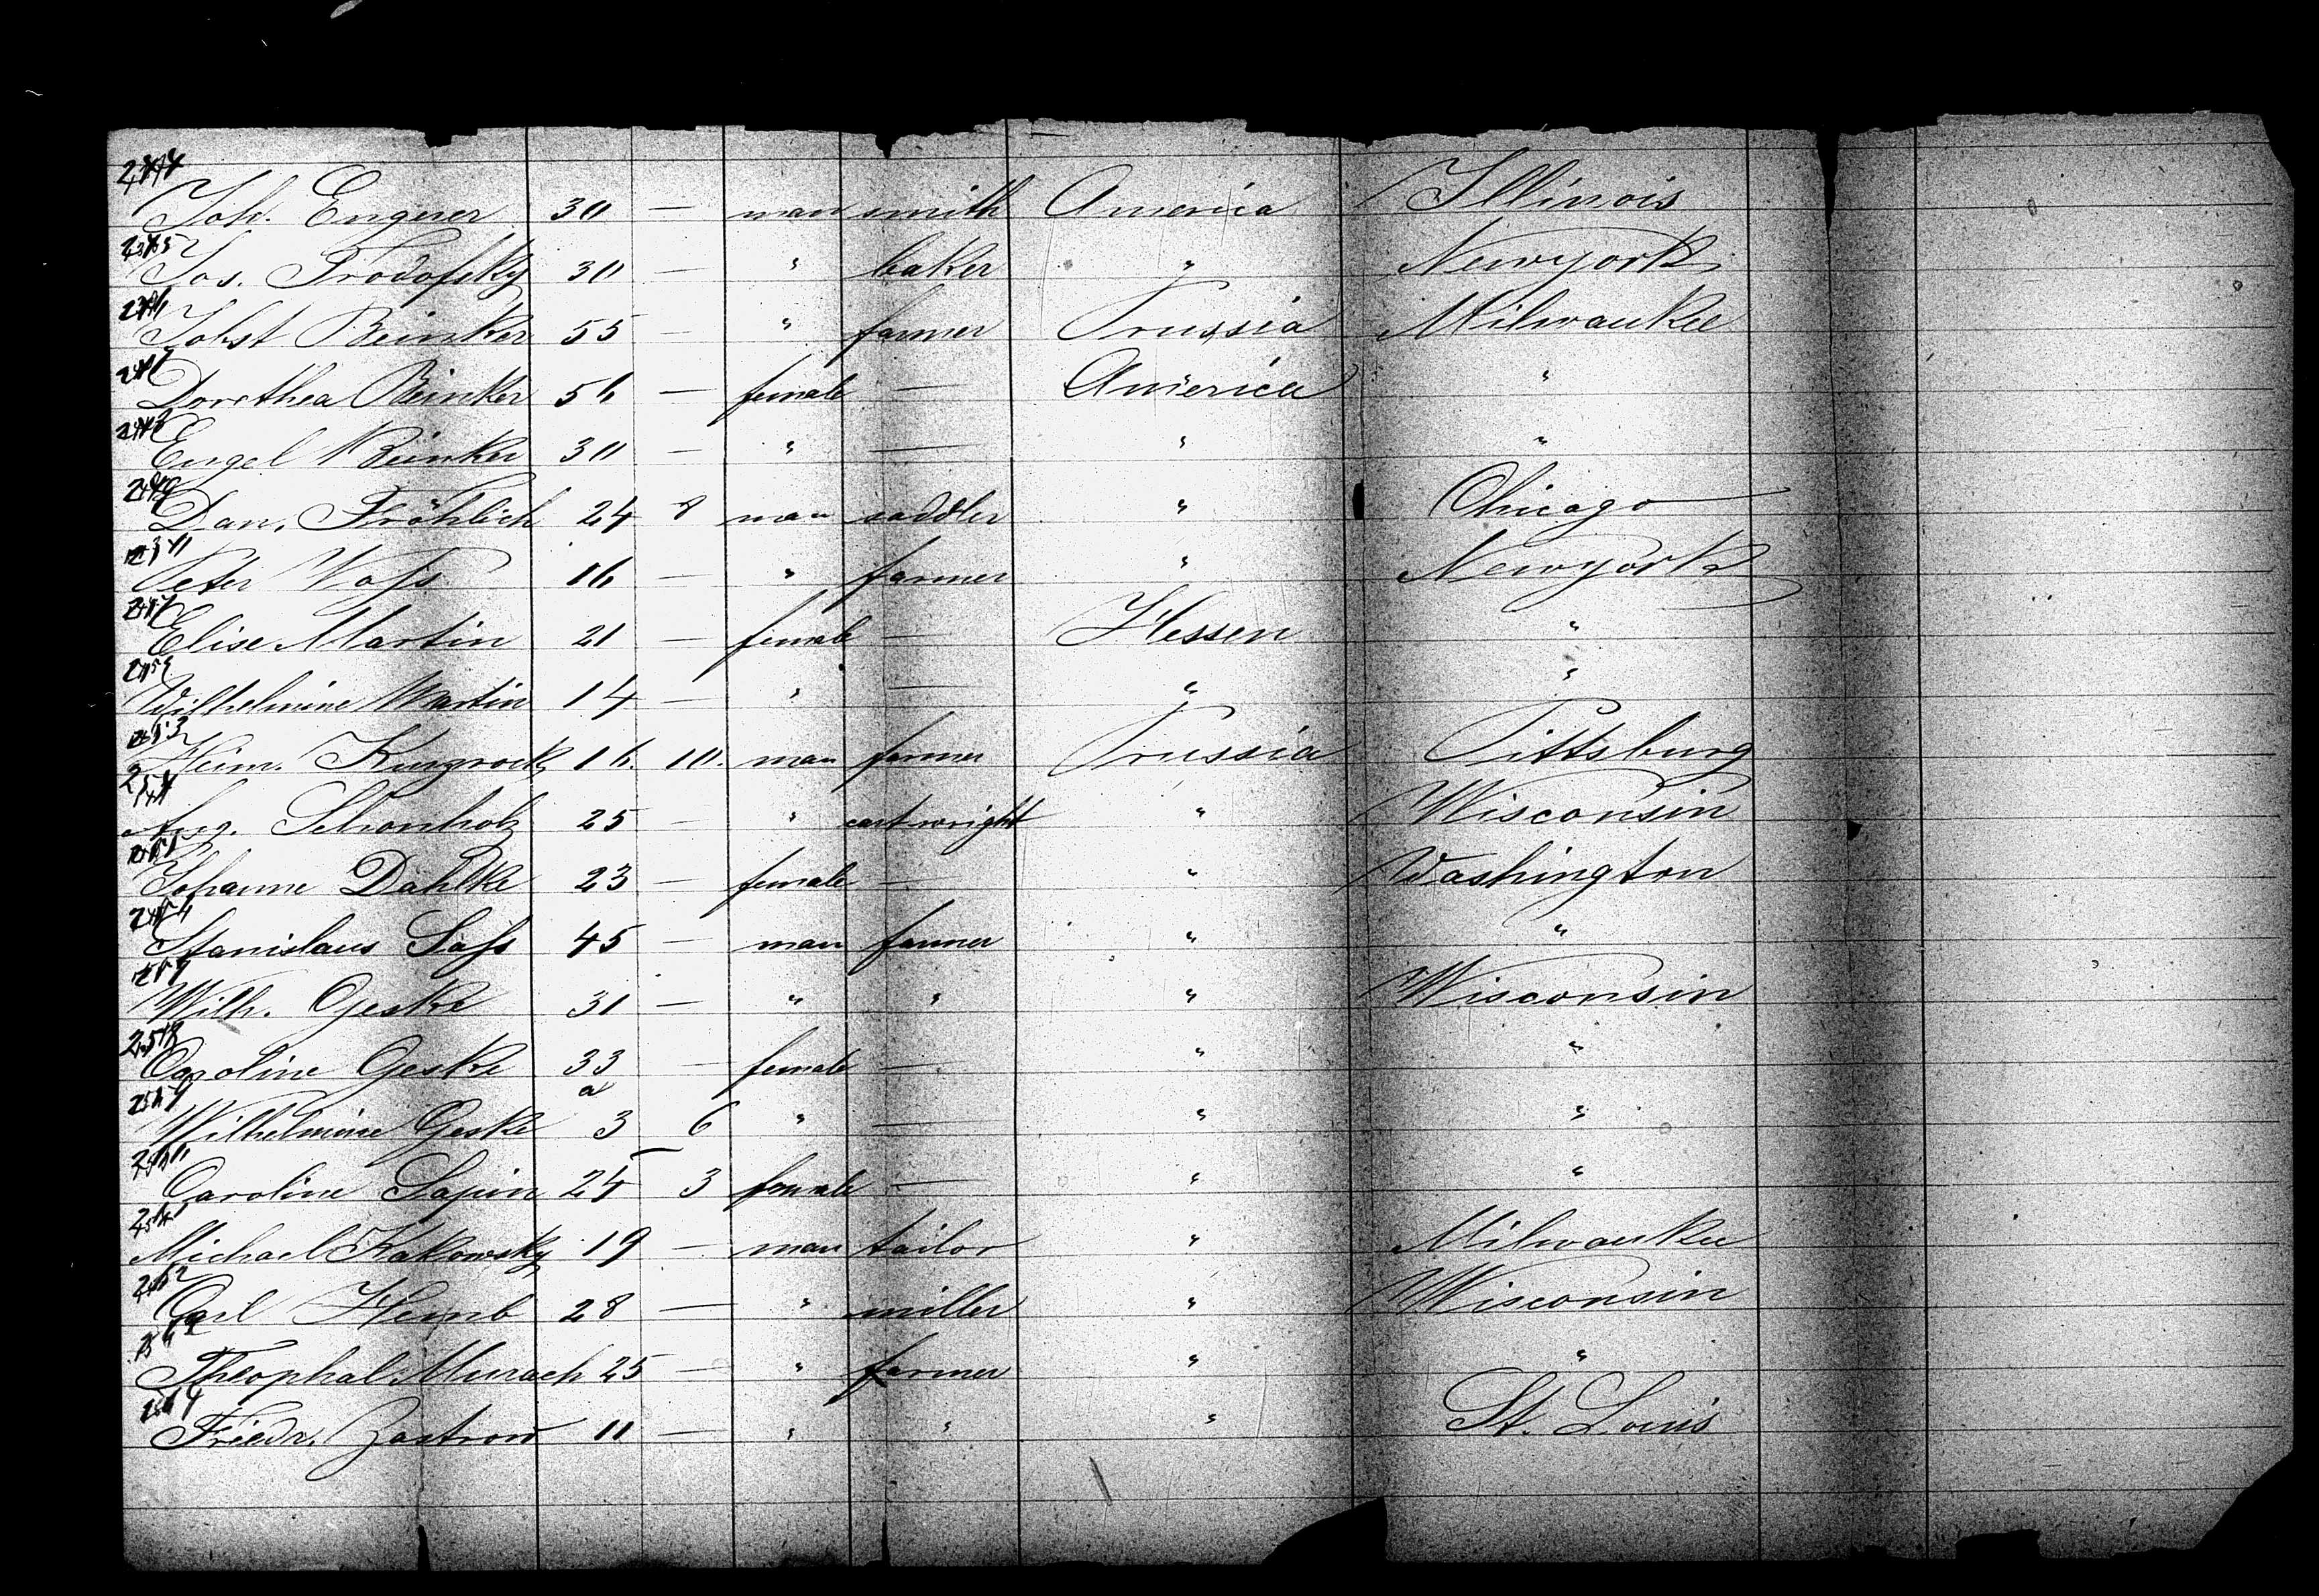 Joh. Engner 30 — man smith America Illinois
Jos. Prodofsky 30 — " baker " Newyork
Jobst Beinker 55 — " farmer Prussia Milwaukee
Dorothea Beinker 56 — female — America "
Engel Beinker 30 — " — " "
Dan. Fröhlich 24 8 man saddler " Chicago
Peter Voss 16 — " farmer " Newyork
Elise Martin 21 — female — Hessen "
Wilhelmine Martin 14 — " — " "
Heinr. 16. 10. man farmer Prussia Pittsburg
Aug. Schonholz 25 — " cartwright " Wisconsin
Johanne Dahlke 23 — female — " Washington
Stanislaus Sass 45 — man farmer " "
Wilh. Geske 31 — " " " Wisconsin
2518
Caroline Geske 33 — female — " "
Wilhelmine Geske 3 6 " — " "
Caroline 25 3 female — " "
Michael Kakowsky 19 — man tailor " Milwaukee
Carl Hemb 28 — " miller " Wisconsin
Theophal Murach 25 — " farmer " "
Friedr. Zastrow 11 — " " " St. Louis